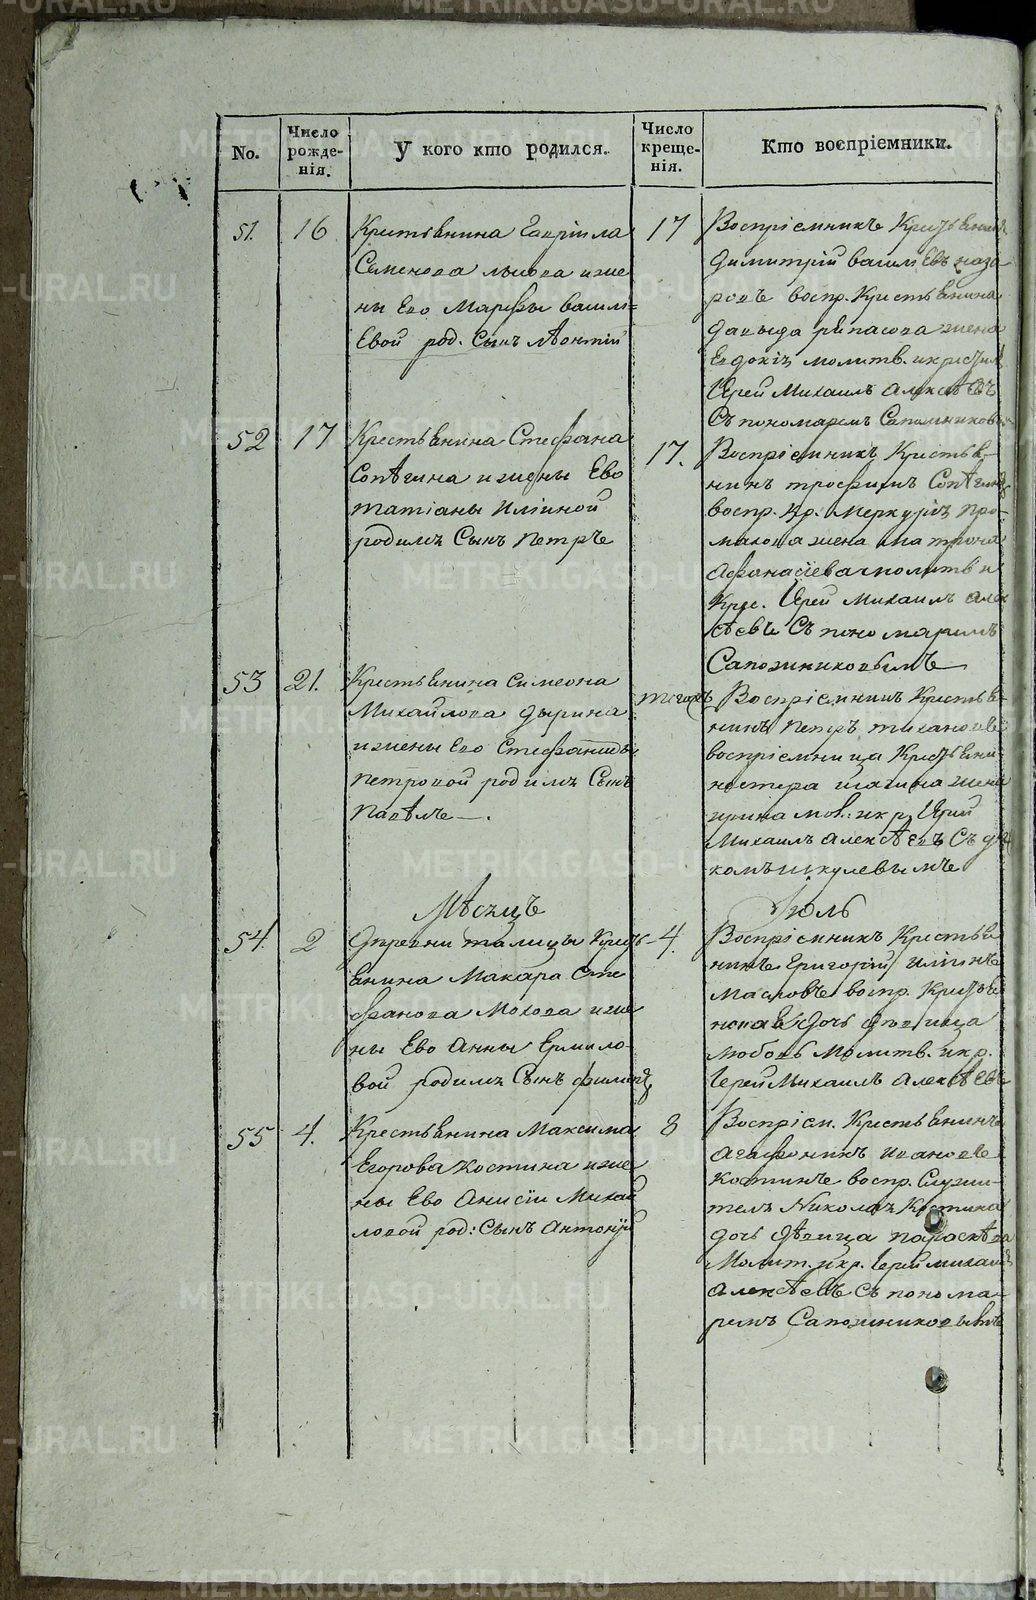 No.
Число рожде-нія.
У кого кто родился.
Число креще-нія.
Кто воспріемники.
51.
16
Крестьянина Гавріила
Семенова Львова и же
ны Его Марѳы Василь=
Евой род. Сынъ Лѣонтій
17
Воспріемникъ Крестьянинъ
Димитрій Васильевъ Наза
ровъ воспр. Крестьянина
Давыда жена
Евдокія молитв. и крестилъ
Иерей Михаилъ Алексѣевъ
Съ пономаремъ Сапожниковымъ
52
17
Крестьянина Стефана
Сопѣгина и жены Его
Татіаны Илііной
родился Сынъ Петръ
17.
Воспріемникъ Крестья-
нинъ Трофимъ Сопѣгинъ
воспр. Кр. Меркурія Про-
махова жена Матрона
Афанасіева молитв и
Крес. Иерей Михаилъ Алек
сѣевъ Съ пономаремъ
Сапожниковымъ
53
21.
Крестьянина Симеона
Михайлова Дырина
и жены Его Стефаниды
Петровой родился Сынъ
Павѣлъ —.
тогожъ
Воспріемникъ Крестья-
нинъ Петръ Тихановъ
воспріемница Крестьяни
Нестера жена
Ирина мол. и кр. Иерей
Михаилъ Алексѣевъ Съ дья
комъ Шкулевымъ
Мѣсяцъ
Іюль
54.
2
Деревни Талицы Кресть-
янина Макара Сте
фанова Мохова и же
ны Его Анны Ермило-
вой родился Сынъ Филипъ
4.
Воспріемникъ Крестья
нинъ Григорій Иліинъ
Масловъ воспр. Крестья
нова дочь дѣвица
Любовь Молитв. и кр.
Иерей Михаилъ Алексѣевъ
55
4.
Крестьянина Максима
Егорова Костина и же
ны Его Анисіи Михай
ловой род: Сынъ Антоній
8
Воспріем. Крестьянинъ
Агафоникъ Ивановъ
Костинъ воспр. Служи-
теля Николая Костина
дочь дѣвица Параскѣва
Молит. и кр. Іерей Михаилъ
Алексѣевъ Съ понома-
ремъ Сапожниковымъ
METRIKI.GASO-URAL.RU